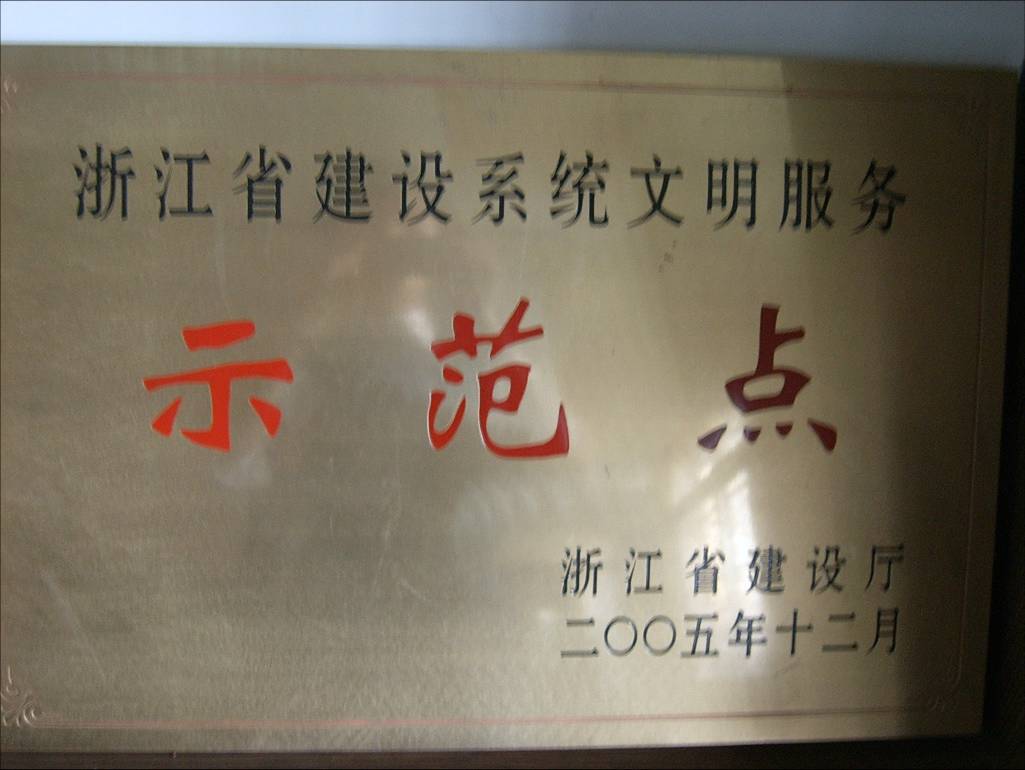 浙江省建设系统文明服务
示范点
浙江省建设厅
二〇〇五年十二月